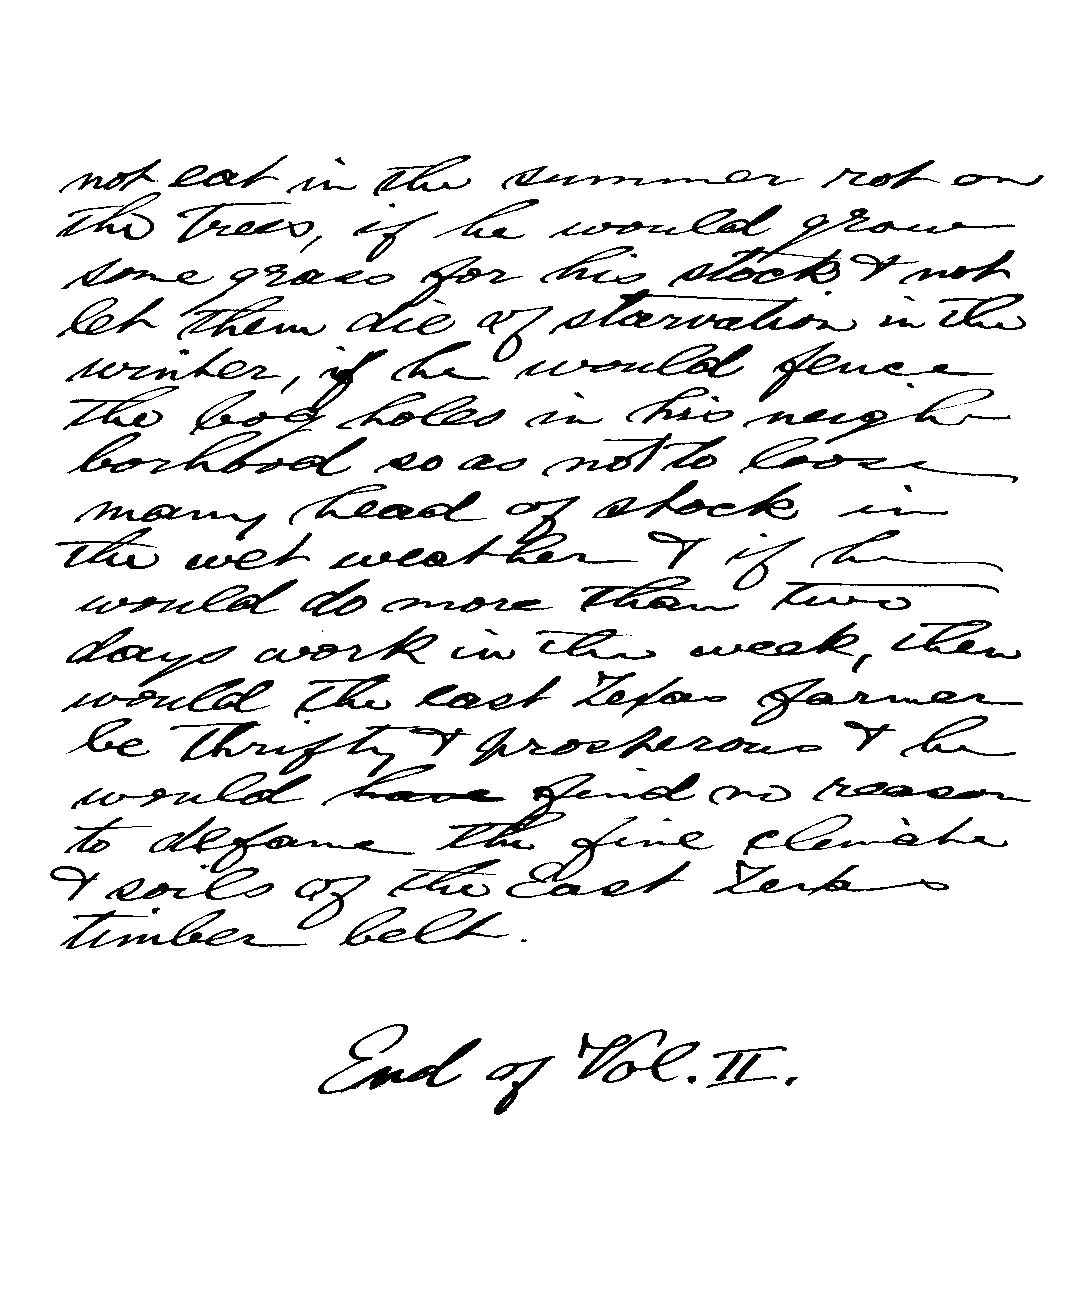 not eat in the summer rot on
the trees, if he would grow
some grass for his stock & not
let them die of starvation in the
winter, if he would fence
the bog holes in his neigh
borhood so as not to loose
many head of stock in
the wet weather & if he
would do more than two
days work in the week, then
would the east Texas farmer
be thrifty & prosperous & he
would have find no reason
to defame the fine climate
& soils of the East Texas
timber belt.
End of Vol. II.